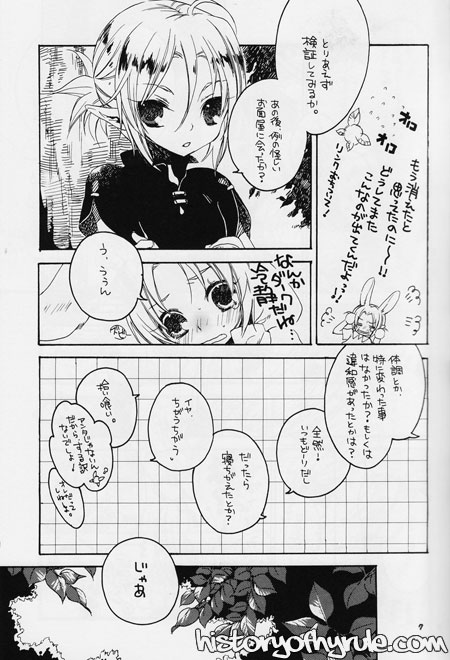 とりあえず
検証してみるか。
オロ
オロ
リンクおちついて〜
もう消えたと
思ってたのに〜!!
どうしてまた
こんなのが出てくんだよっ!!
あの後、例の怪しい
お面屋に会ったか?
う、ううん
なんか
ダークだね…
冷静
体調とか、
特に変わった事
はなかったか?もしくは
違和感があったとかは?
全然!
いつもどーりだし
だったら
寝ちがえたとか?
イヤ、
ちがうちがう。
拾い喰い。
アンタじゃないん
だからする訳
ないでしょ!
じゃあ
7
historyofhyrule.com